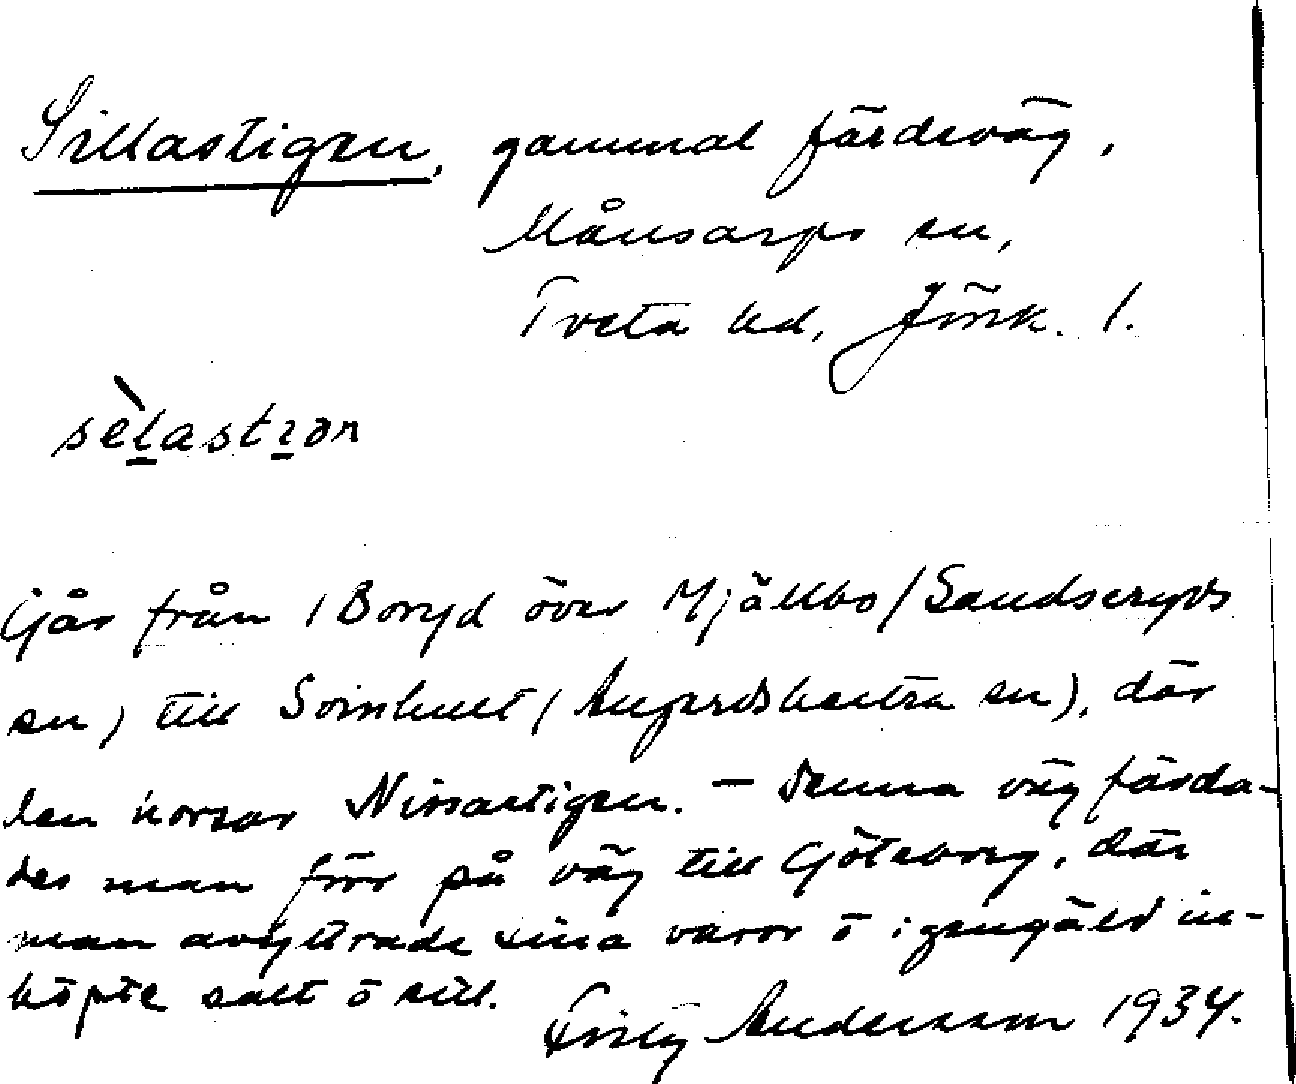 Sillastigen, gammal färdeväg,
Månsarps sn,
Tveta hd, Jönk. l.
sèlastıən
Går från /Boryd över Mjällbo /Sandseryds
sn) till Sörnhult (Angerdshestra sn), där
den korsar Nissastigen. – Denna väg färda-
des man förr på väg till Göteborg, där
man avyttrade sina varor o igengäld in-
köpte salt o sill.
Andersson 1934.